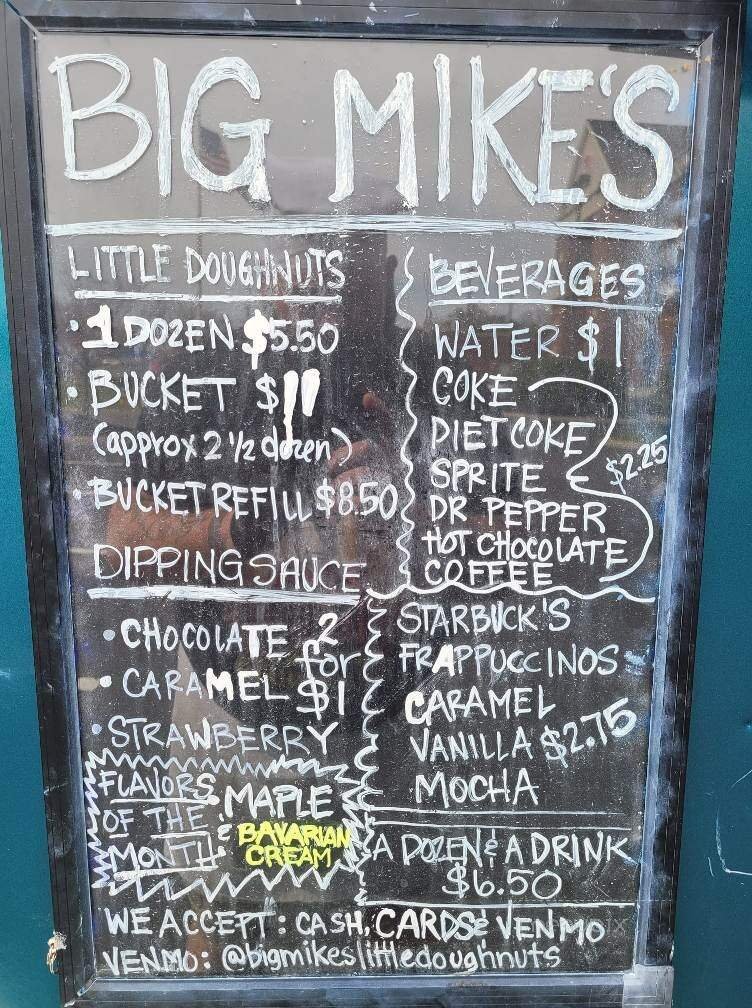 BIG MIKE'S
LITTLE DOUGHNUTS
• 1 DOZEN $5.50
• BUCKET $11
(approx 2 1/2 dozen)
• BUCKET REFILL $8.50
DIPPING SAUCE
• CHOCOLATE
• CARAMEL
• STRAWBERRY
2
for
$1
FLAVORS
OF THE
MONTH:
MAPLE
& BAVARIAN
CREAM
BEVERAGES
WATER $1
COKE
DIET COKE
SPRITE
DR PEPPER
HOT CHOCOLATE
COFFEE
$2.25
STARBUCK'S
FRAPPUCCINOS
CARAMEL
VANILLA $2.75
MOCHA
A DOZEN & A DRINK
$6.50
WE ACCEPT: CASH, CARDS & VENMO
VENMO: @bigmikeslittledoughnuts